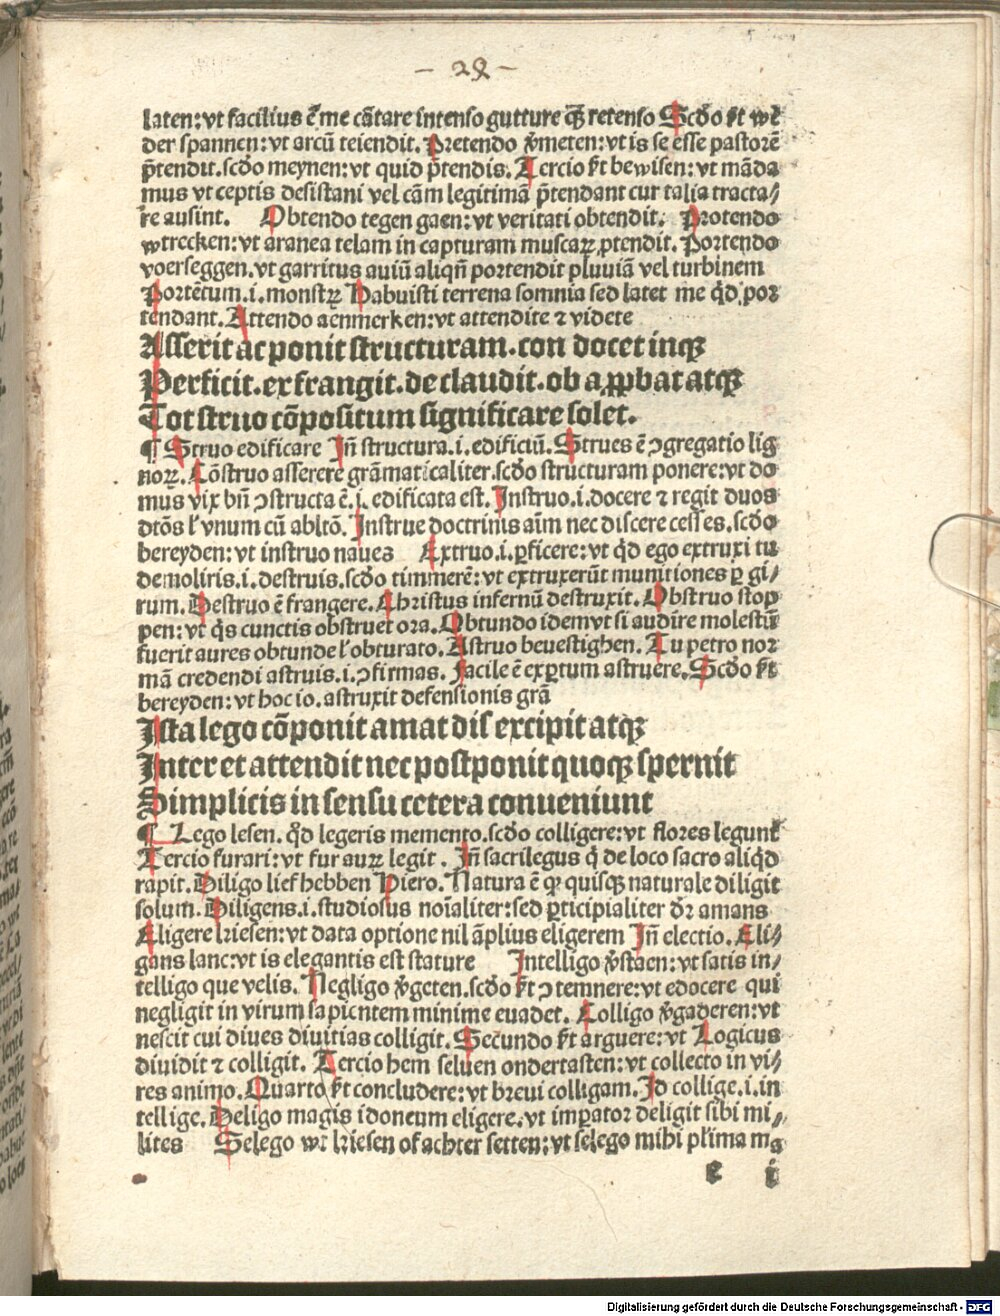 - 28 -
laten: vt facilius ē me cātare intenso gutture qͣꝫ retenso Scḋo ꝶt wē
der spannen: vt arcū teiendit. Pretendo v̄meten: vt is se esse pastorē
p̄tendit. scḋo meynen: vt quid p̄tendis. Tercio ꝶt bewisen: vt māda
mus vt ceptis desistani vel cām legitimā p̄tendant cur talia tracta⸗
re ausint. Obtendo tegen gaen: vt veritati obtendit. Protendo
wtrecken: vt aranea telam in capturam muscaꝝ ꝓtendit. Portendo
voerseggen. vt garritus auiū aliqn̄ portendit pluuiā vel turbinem
Portētum .i. monstrꝝ Habuisti terrena somnia sed latet me qḋ por
tendant. Attendo aenmerken: vt attendite ⁊ videte
Asserit ac ponit structuram. con docet inqꝫ
Perficit. ex frangit. de claudit. ob a ꝓbat atqꝫ
Tot struo cōpositum significare solet.
¶ Struo edificare Jn̄ structura .i. edificiū. Strues ē ꝯgregatio lig
noꝝ. Cōstruo asserere grāmaticaliter. scḋo structuram ponere: vt do
mus vix bn̄ ꝯstructa ē .i. edificata est. Jnstruo .i. docere ⁊ regit duos
ctōs ł vnum cū abltō. Jnstrue doctrinis aīm nec discere cesses. scḋo
bereyden: vt instruo naues Extruo .i. ꝑficere: vt qḋ ego extruxi tu
demoliris .i. destruis. scḋo timmerē: vt extruxerūt munitiones ꝑ gi⸗
rum. Destruo ē frangere. Christus infernū destruxit. Obstruo stop
pen: vt q̇s cunctis obstruet ora. Obtundo idem vt si audire molestū
fuerit aures obtunde ł obturato. Astruo bevestighen. Tu petro nor
mā credendi astruis .i. ꝯfirmas. Facile ē exꝑtum astruere. Scḋo ꝶt
bereyden: vt hoc io. astruxit defensionis grā
Jsta lego cōponit amat dis excipit atqꝫ
Jnter et attendit nec postponit quoqꝫ spernit
Simplicis in sensu cetera conueniunt
¶ Lego lesen. qḋ legeris memento. scḋo colligere: vt flores legunt̄
Tercio furari: vt fur auꝝ legit. Jn̄ sacrilegus q̇ de loco sacro aliqḋ
rapit. Diligo lief hebben Piero. Natura ē qꝫ quisqꝫ naturale diligit
solum. Diligens .i. studiosus noīaliter: sed ꝑticipialiter dr̄ amans
Eligere kriesen: vt data optione nil āplius eligerem Jn̄ electio. Eli⸗
gans lanc: vt is elegantis est stature Jntelligo v̄staen: vt satis in⸗
telligo que velis. Negligo v̄geten. scḋo ꝶt ꝯtemnere: vt edocere qui
negligit in virum sapicntem minime euadet. Colligo v̄gaderen: vt
nescit cui diues diuitias colligit. Secundo ꝶt arguere: vt Logicus
diuidit ⁊ colligit. Tercio hem seluen ondertasten: vt collecto in vi⸗
res animo. Quarto ꝶt concludere: vt breui colligam. Jd collige .i. in
tellige. Deligo magis idoneum eligere. vt imꝑator deligit sibi mi⸗
lites Selego wt kriesen of achter setten: vt selego mihi pl̄ima ma
e i
Digitalisierung gefördert durch die Deutsche Forschungsgemeinschaft - DFG